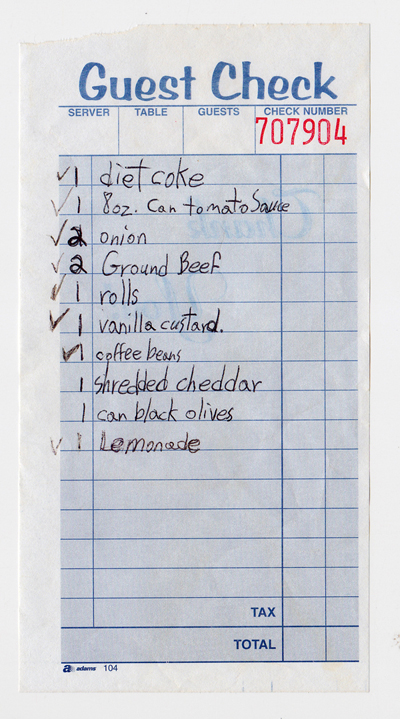 Guest Check
SERVER TABLE GUESTS CHECK NUMBER
707904
✓ 1 diet coke
✓ 1 8oz. Can tomato Sauce
✓ 2 onion
✓ 2 Ground Beef
✓ 1 rolls
✓ 1 vanilla custard.
✓ 1 coffee beans
1 shredded cheddar
1 can black olives
✓ 1 Lemonade
TAX
TOTAL
a adams 104